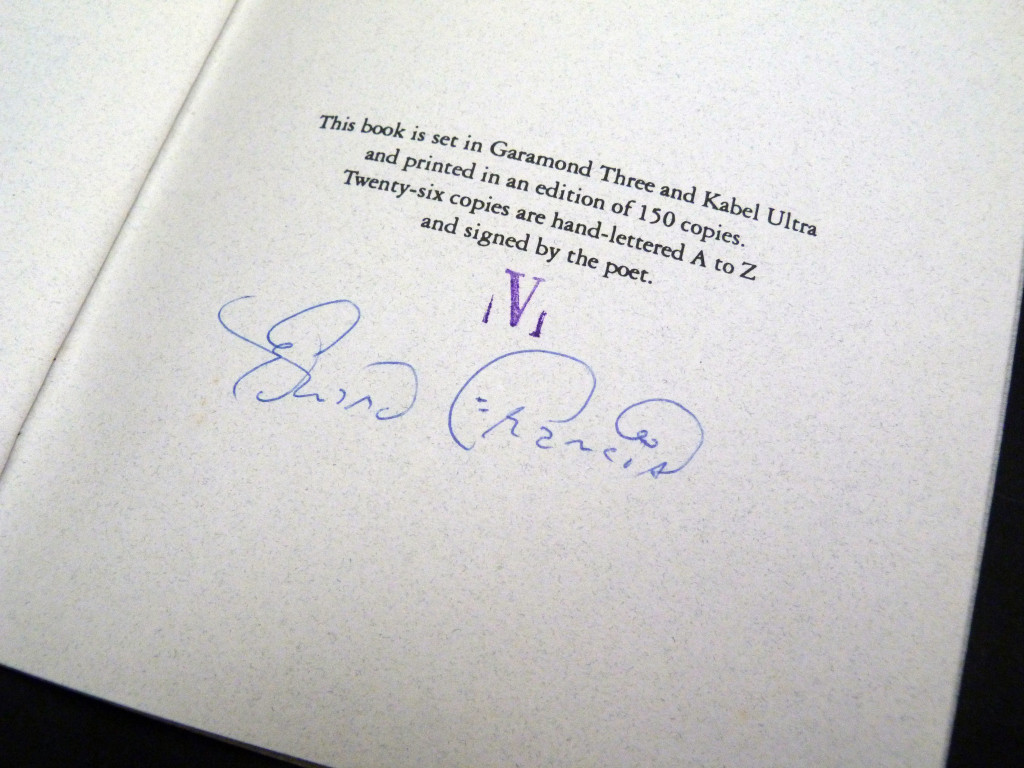 This book is set in Garamond Three and Kabel Ultra
and printed in an edition of 150 copies.
Twenty-six copies are hand-lettered A to Z
and signed by the poet.